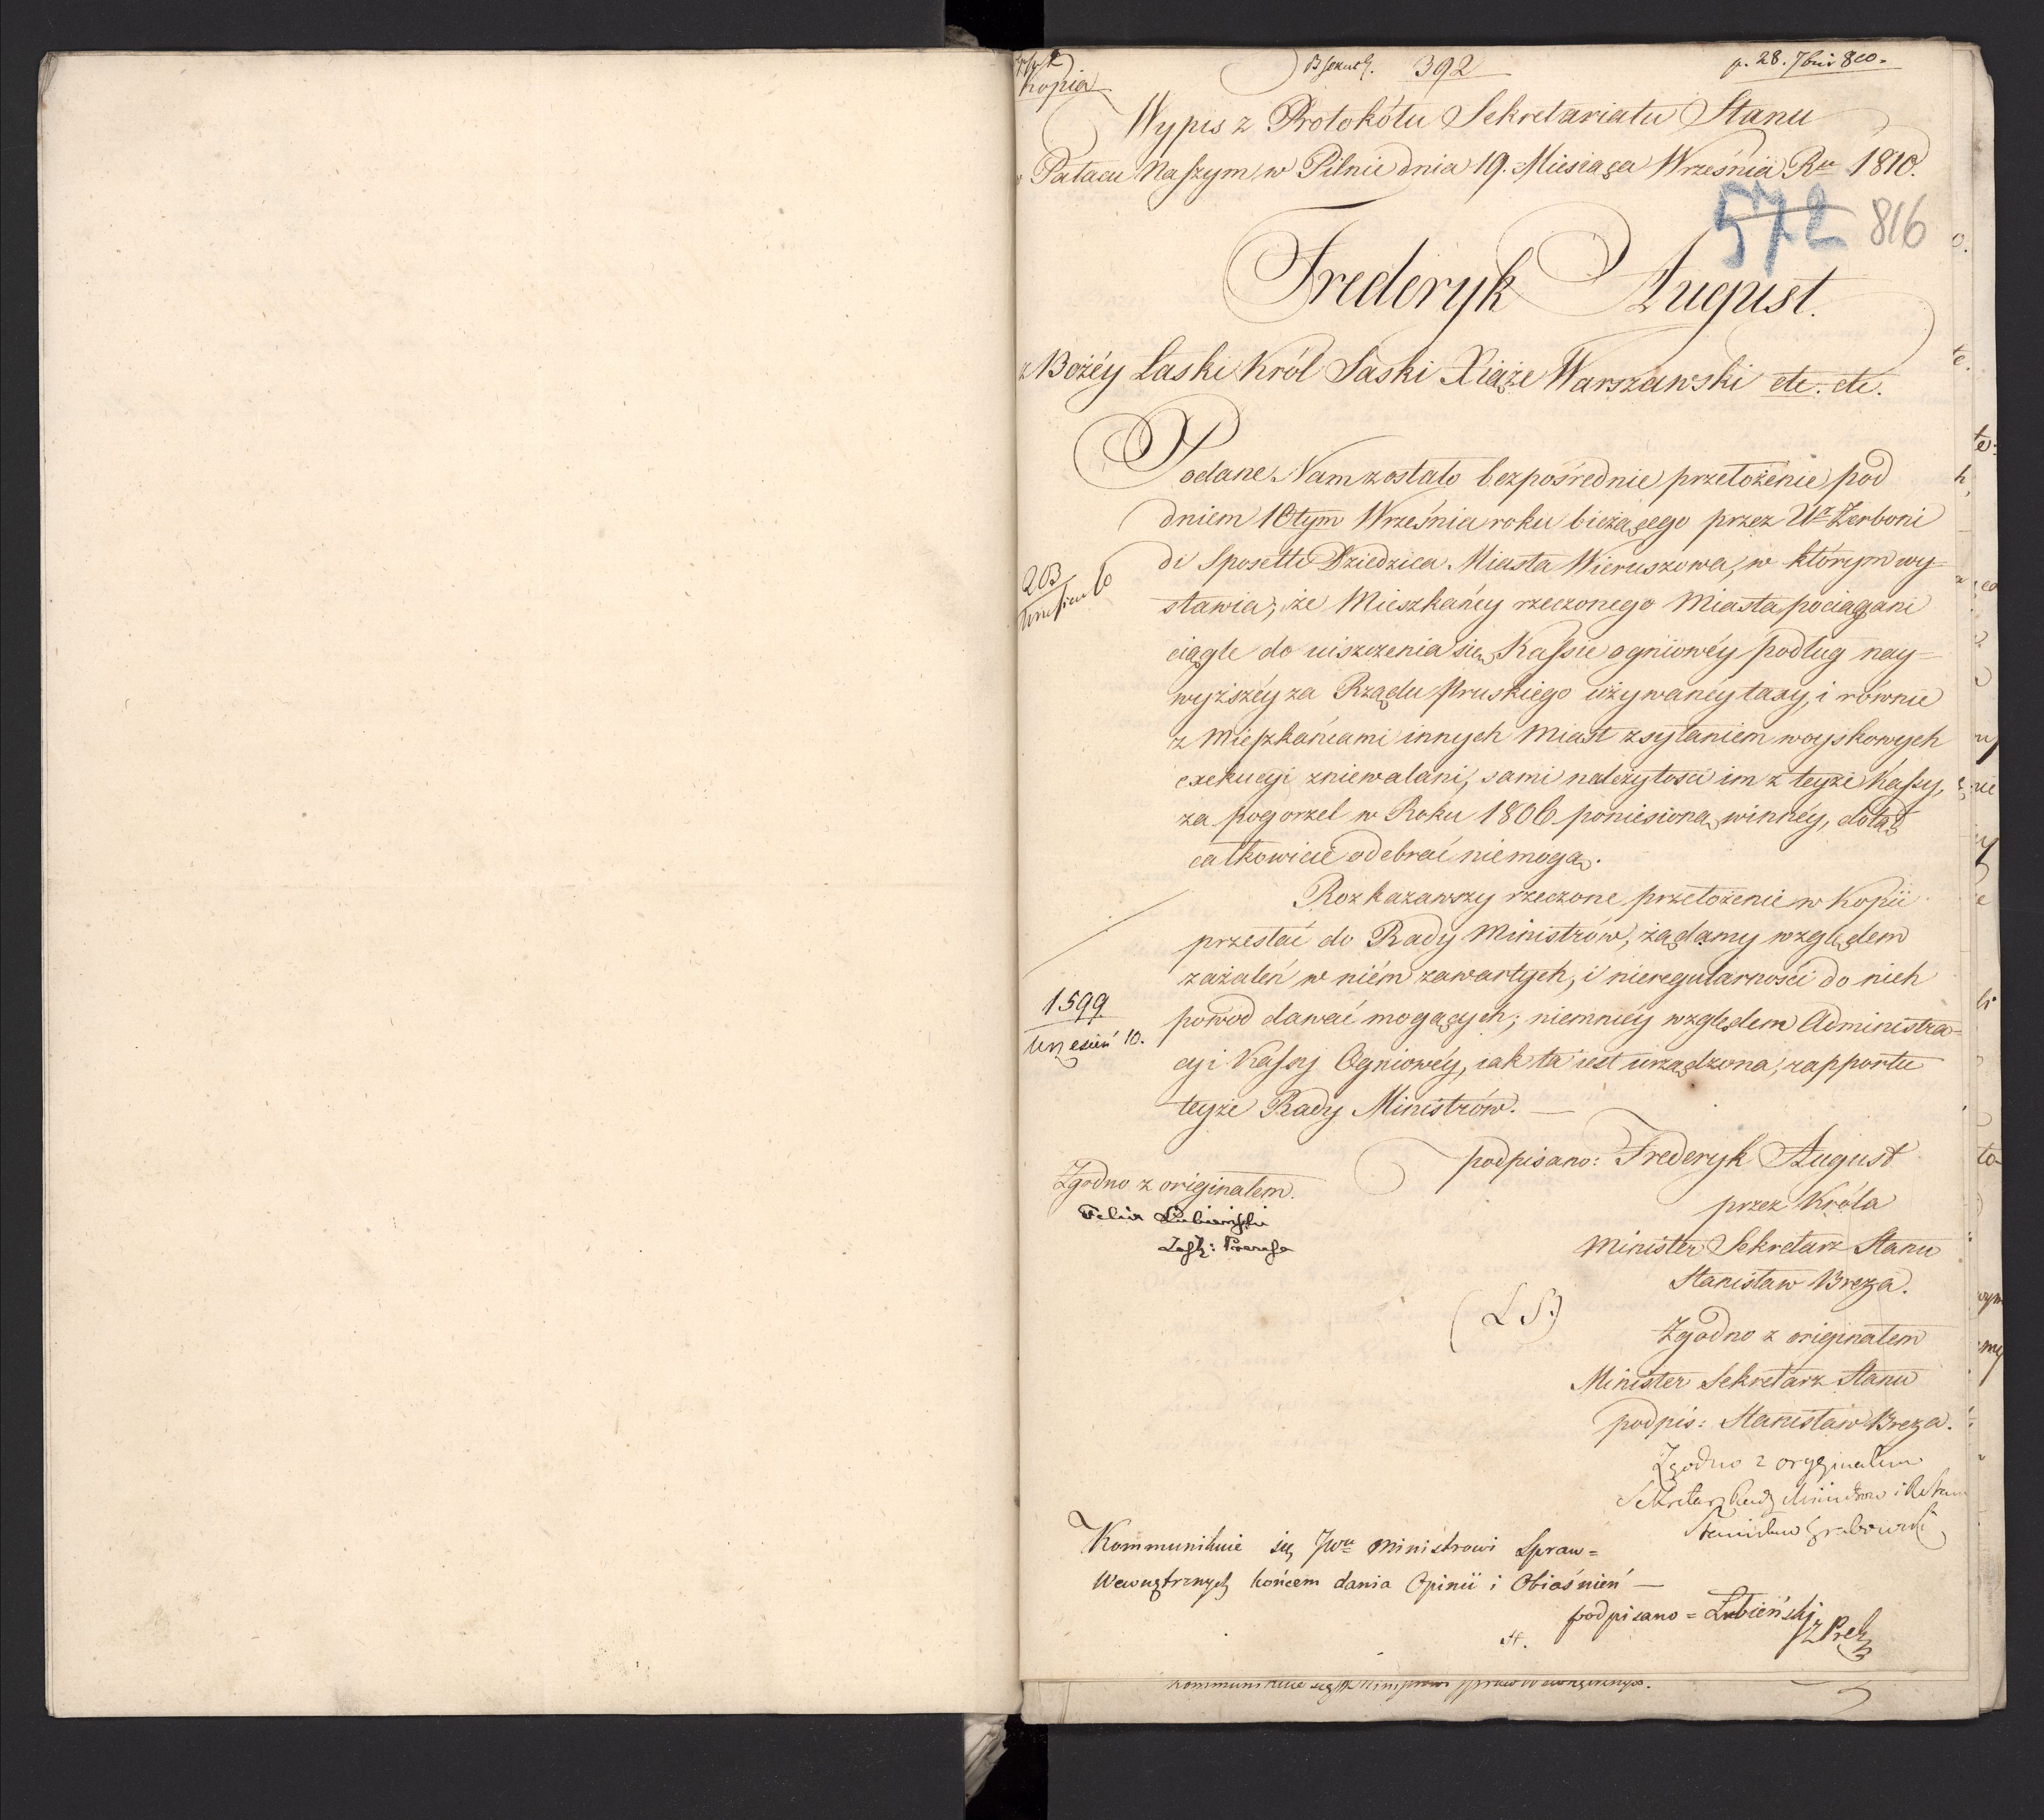 Kopia
392
p. 28. 7bris 810.
Wypis z Protokółu Sekretariatu Stanu
w Pałacu Naszym w Pilnie dnia 19. Miesiąca Września Ru 1810.
572 816
Frederyk August.
z Bożéy Łaski Król Saski Xiąże Warszawski etc. etc.
Podane Nam zostało bezpośrednie przełożenie pod
dniem 10tym Września roku bieżącego przez Ur Zerboni
di Sposetti Dziedzica Miasta Wieruszowa, w którym wy-
stawia, że Mieszkańcy rzeczonego Miasta pociągani
ciągle do uiszczenia się Kassie ogniowéy podług nay-
wyższéy za Rządu Pruskiego używanéy taxy, i równie
z Mieszkańcami innych Miast zsyłaniem woyskowych
exekucyi zniewalani, sami należytości im z teyże Kassy,
za pogorzel w Roku 1806 poniesioną winnéy, dotąd
całkowicie odebrać niemogą.
Rozkazawszy rzeczone przełożenie w Kopii
przesłać do Rady Ministrów, żądamy względem
zażaleń w niém zawartych, i nieregularności do nich
powód dawać mogących; niemniéy względem Administra-
cyi Kassy Ogniowéy, iak ta iest urządzona, rapportu
teyże Rady Ministrów.
203
1599
Wrzesień 10.
podpisano: Frederyk August
przez Króla
Minister Sekretarz Stanu
Stanisław Breza.
Zgodno z originałem.
Felix Łubieński
Zastę: Prezesa
(L S.)
Zgodno z originałem
Minister Sekretarz Stanu
podpis: Stanisław Breza.
Zgodno z oryginałem
Sekretarz Rady Ministrów i R. Stanu
Stanisław Grabowski
Kommunikuie się JWu Ministrowi Spraw=
Wewnętrznych końcem dania Opinii i Obiaśnień —
podpisano = Łubieński
Z Prez